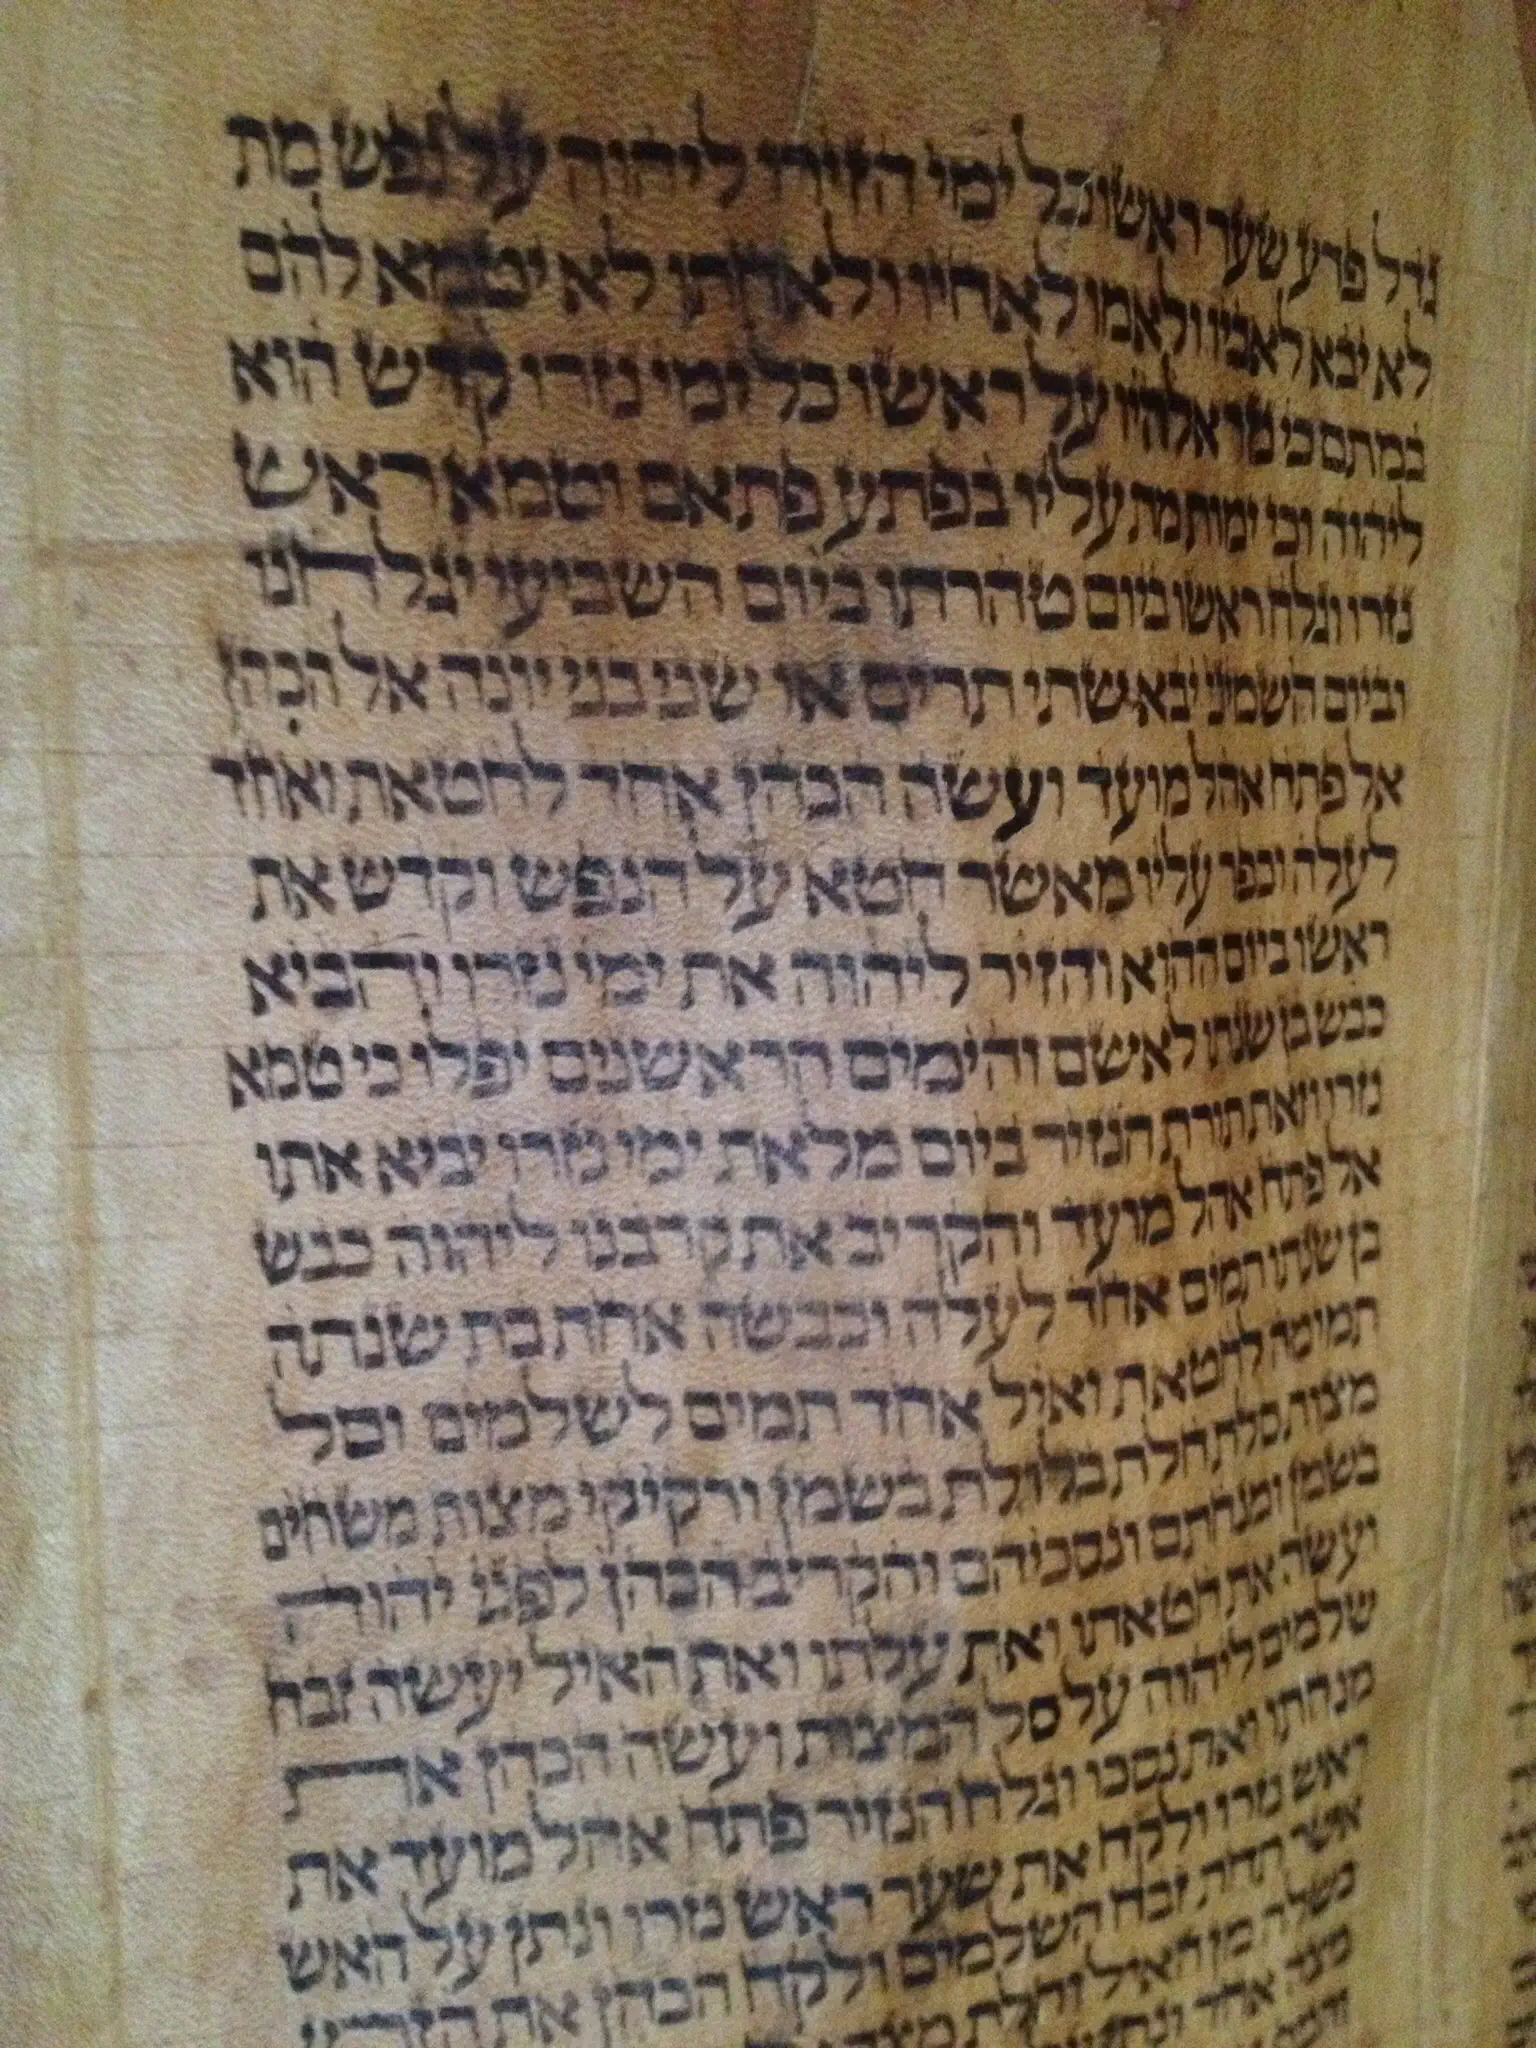 גדל פרע שער ראשו כל ימי הזירו ליהוה על נפש מת
לא יבא לאביו ולאמו לאחיו ולאחתו לא יטמא להם
במתם כי נזר אלהיו על ראשו כל ימי נזרו קדש הוא
ליהוה וכי ימות מת עליו בפתע פתאם וטמא ראש
נזרו וגלח ראשו ביום טהרתו ביום השביעי יגלחנו
וביום השמיני יבא שתי תרים או שני בני יונה אל הכהן
אל פתח אהל מועד ועשה הכהן אחד לחטאת ואחד
לעלה וכפר עליו מאשר חטא על הנפש וקדש את
ראשו ביום ההוא והזיר ליהוה את ימי נזרו והביא
כבש בן שנתו לאשם והימים הראשנים יפלו כי טמא
נזרו וזאת תורת הנזיר ביום מלאת ימי נזרו יביא אתו
אל פתח אהל מועד והקריב את קרבנו ליהוה כבש
בן שנתו תמים אחד לעלה וכבשה אחת בת שנתה
תמימה לחטאת ואיל אחד תמים לשלמים וסל
מצות סלת חלת בלולת בשמן ורקיקי מצות משחים
בשמן ומנחתם ונסכיהם והקריב הכהן לפני יהוה
ועשה את חטאתו ואת עלתו ואת האיל יעשה זבח
שלמים ליהוה על סל המצות ועשה הכהן את
מנחתו ואת נסכו וגלח הנזיר פתח אהל מועד את
ראש נזרו ולקח את שער ראש נזרו ונתן על האש
אשר תחת זבח השלמים ולקח הכהן את הזרע
בשלה מן האיל וחלת מצה
מצה אחד ונתן